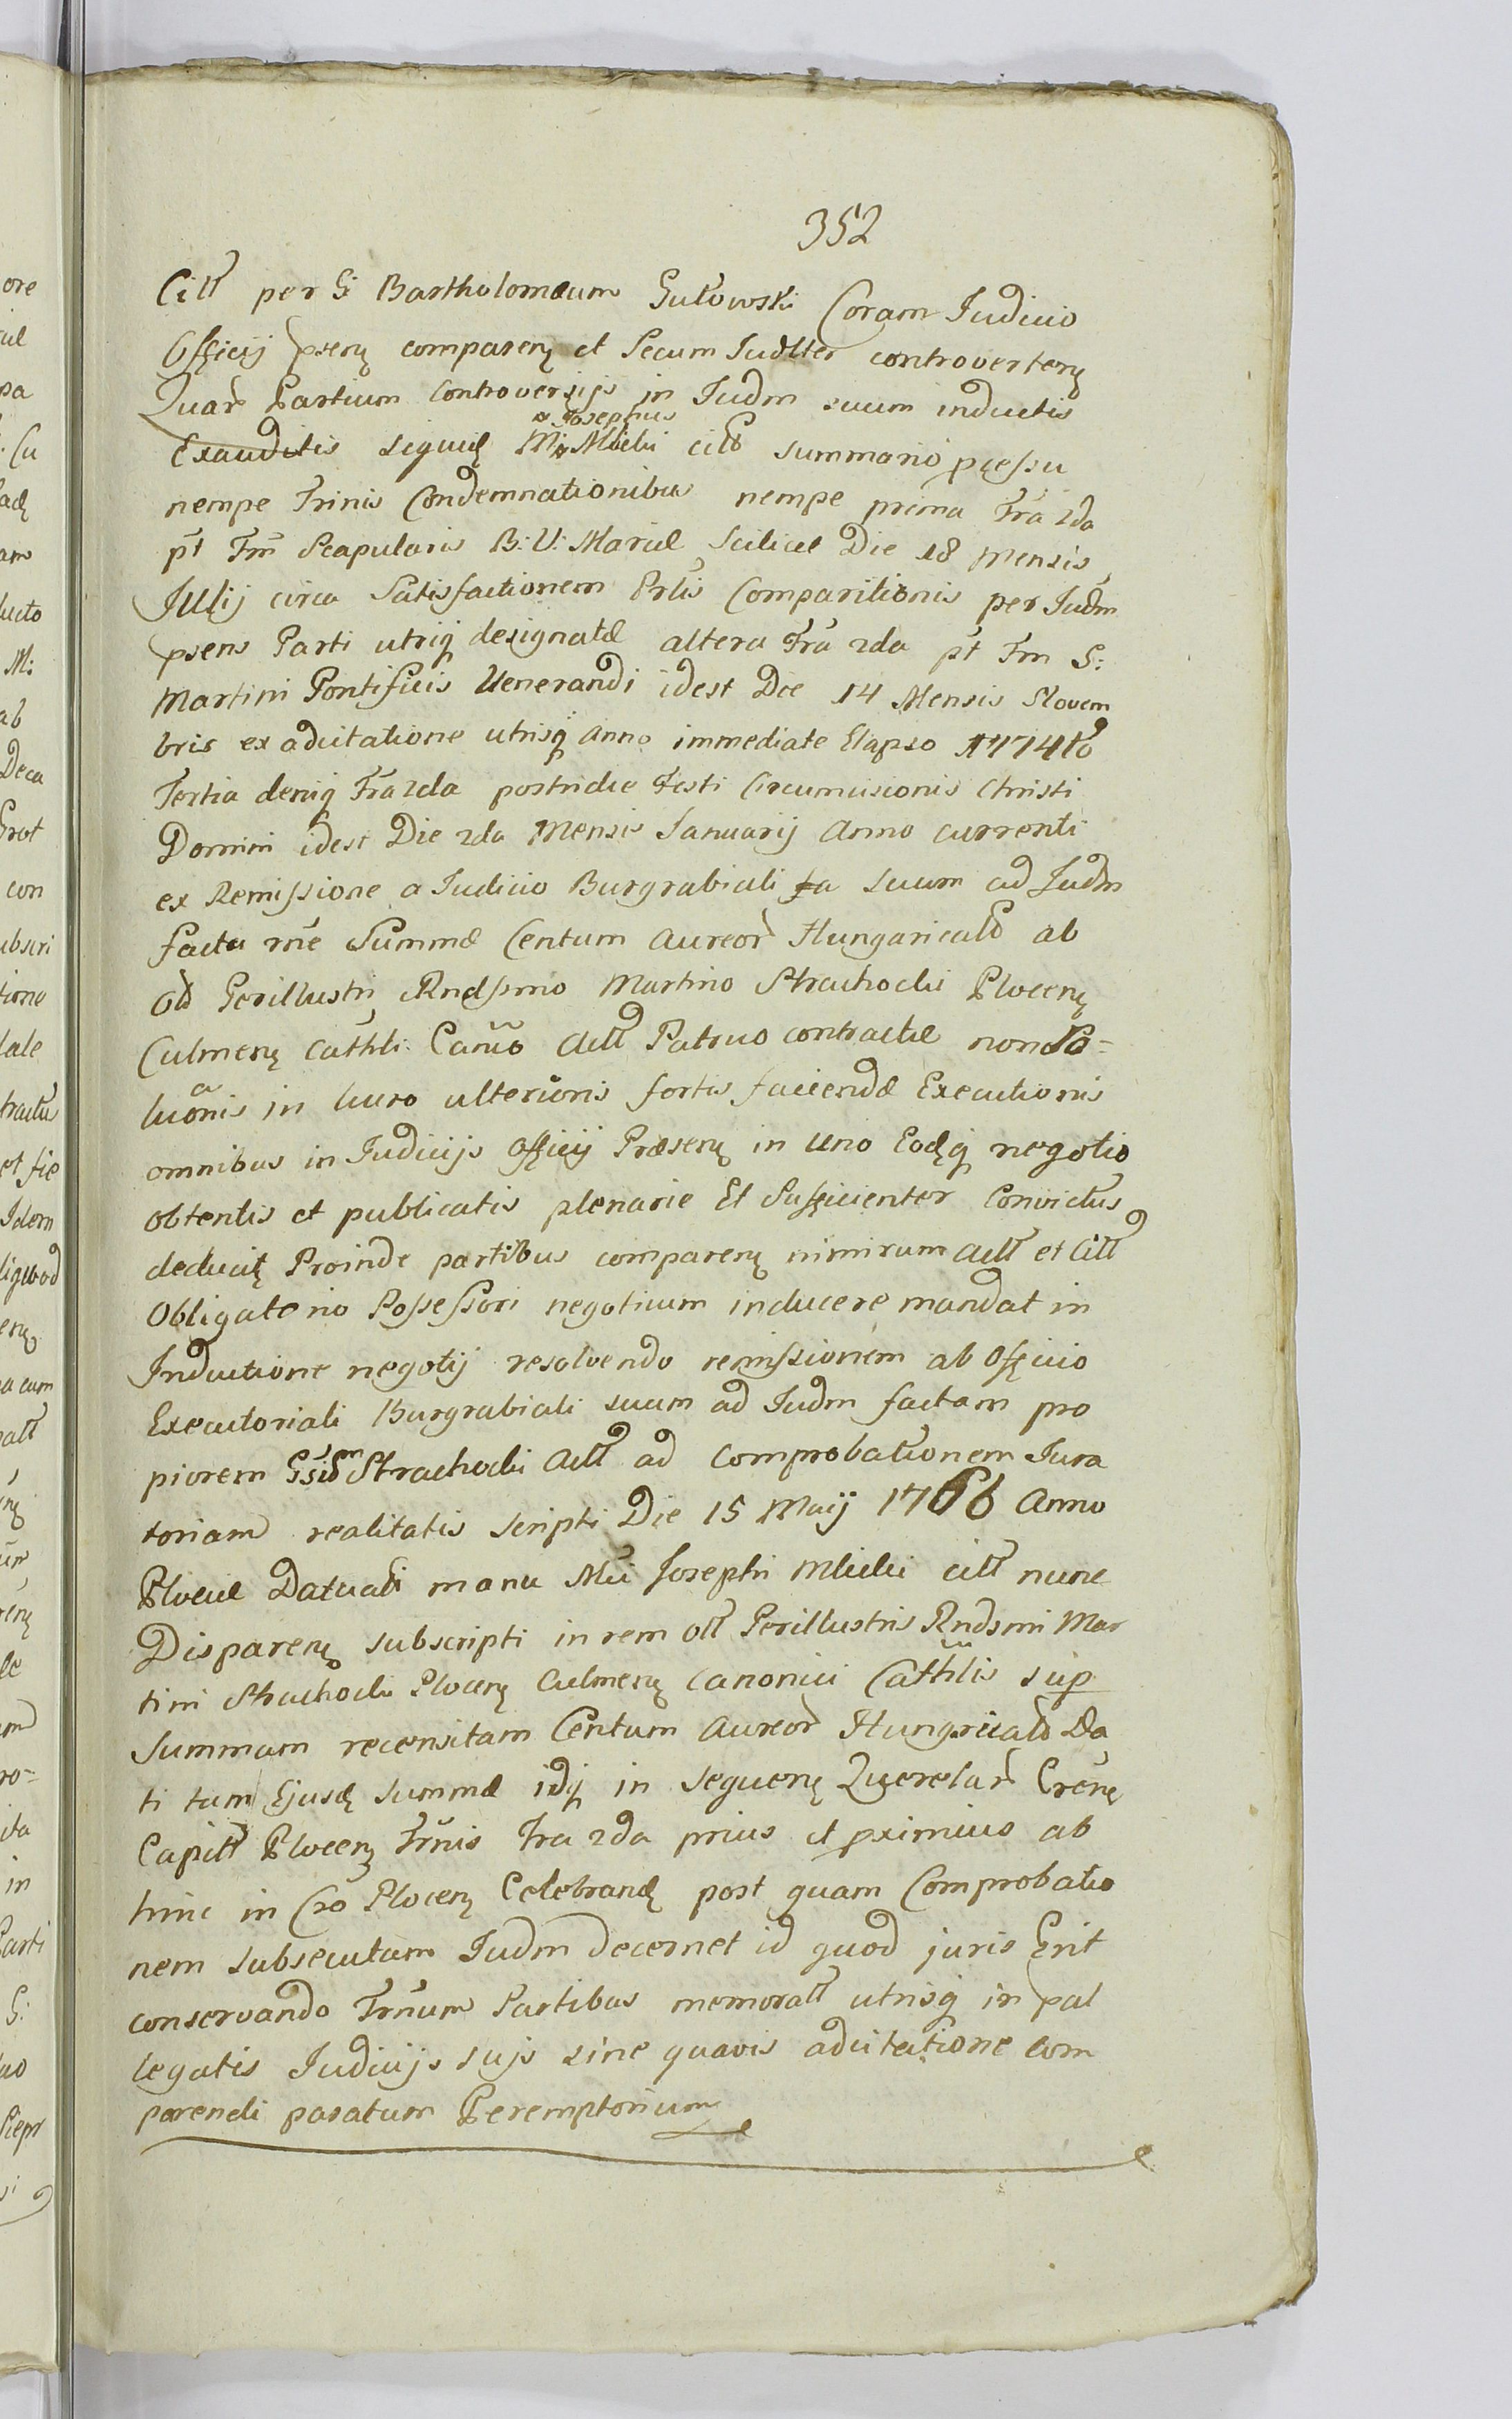 352
Citt per G: Bartholomæum Gutowski Coram Iudicio
Officij pserz comparenz et Secum Iudlter controvertenz
Quar Partium Controversijs in Iudm suum inductis
Exauditis siquid M: Josephus Mlicki citt summario pcessu
nempe Trinis Condemnationibus nempe prima Fra 2da
pt Fm Scapularis B: V: Mariæ Scilicet Die 18 Mensis
Jullij circa Satisfactionem Prlis Comparitionis per Iudm
psens Parti utriq designatæ altera Fra 2da pt Fm S:
Martini Pontificis Venerandi idest Die 14 Mensis Novem
bris ex adcitatione utrisq Anno immediate Elapso 1774to
Tertia deniq Fra 2da postridie Festi Circumcisionis Christi
Domini idest Die 2da Mensis Ianuarij Anno currenti
ex Remissione a Iudicio Burgrabiali suum ad Iudm
facta rne Summæ Centum Aureor Hungaricald ab
Perillustri Rndssmo Martino Strachocki Plocenz
Culmenz Cathli: Canco Actt Patruo contractæ non So=
luonis in luuro ulterioris fortis faciendæ Executionis
omnibus in Iudicijs Officij Præsenz in Uno Eodq negotio
obtentis et publicatis plenarie Et Sufficienter Convictus
deducitz Proinde partibus comparenz nimirum Actt et Citt
Obligatorio Possessori negotium inducere mandat in
Inductione negotij resolvendo remissionem ab Officio
Executoriali Burgrabiali suum ad Iudm factam pro
piorem Gsidm Strachocki Actt ad Comprobationem Iura
toriam realitatis scripti Die 15 Maij 1766 Anno
Plociæ Datuali manu Mci Josephi Mlicki citt nunc
Disparenz subscripti in rem ott Perillustris Rndsmi Mar
tini Strachocki Plocenz Culmenz Canonici Cathlis sup
Summam recensitam Centum Aureor Hungricald Da
ti tum Ejusdz summæ idq in sequenz Querelar Crenz
Capitt Plocenz Frnis Fra 2da prius et pximius ab
hinc in Cro Plocenz Celebrandz post quam Comprobatio
nem subsecutam Iudm decernet id quod juris Erit
conservando Frnum Partibus memoratt utrisq in pal
legatis Iudicijs sujs sine quavis adcitatione com
parendi paratum Peremptorium